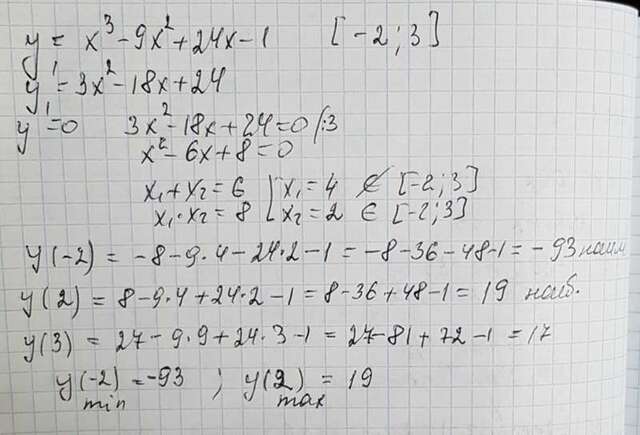 y = x³ - 9x² + 24x - 1 [-2; 3]
y' = 3x² - 18x + 24
y' = 0 3x² - 18x + 24 = 0 /:3
x² - 6x + 8 = 0
x₁ + x₂ = 6 [ x₁ = 4 ∉ [-2; 3]
x₁ · x₂ = 8 [ x₂ = 2 ∈ [-2; 3]
y(-2) = -8 - 9·4 - 24·2 - 1 = -8 - 36 - 48 - 1 = -93 наим
y(2) = 8 - 9·4 + 24·2 - 1 = 8 - 36 + 48 - 1 = 19 наиб.
y(3) = 27 - 9·9 + 24·3 - 1 = 27 - 81 + 72 - 1 = 17
y(-2) = -93 ; y(2) = 19
min max